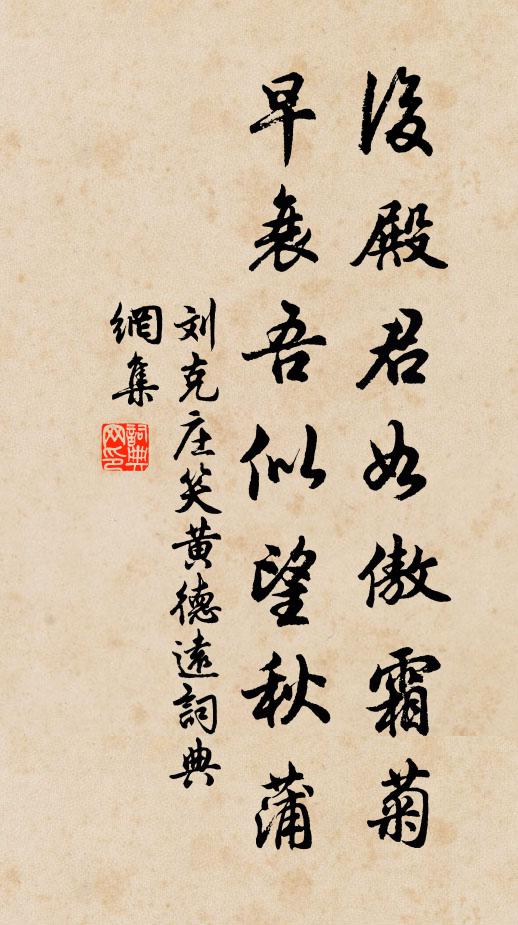 後殿君如傲霜菊
早衰吾似望秋蒲
刘克庄笑黄德遠詞典
網集
詞典網印